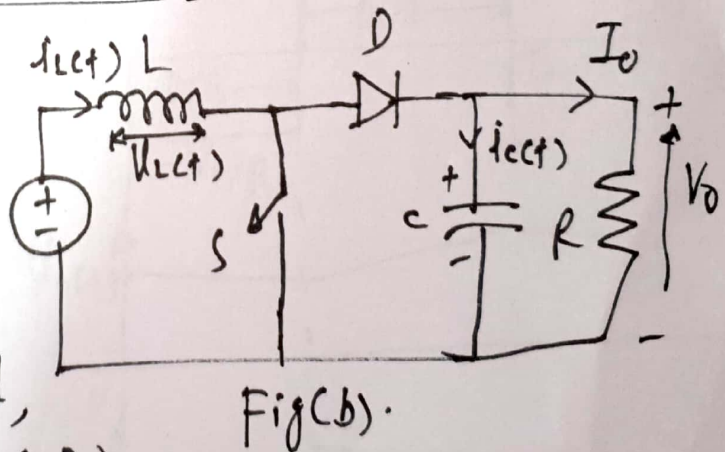 D
iL(t) L
Io
VL(t)
ic(t)
+
+
+
-
S
C
-
R
Vo
-
,
Fig(b).